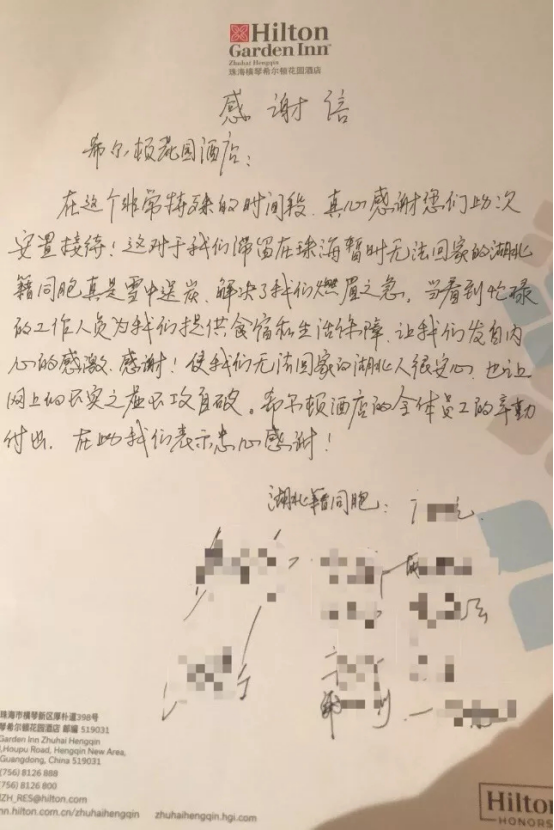 Hilton
Garden Inn™
Zhuhai Hengqin
珠海横琴希尔顿花园酒店
感谢信
希尔顿花园酒店：
在这个非常特殊的时间段，真心感谢您们此次
安置接待！这对于我们滞留在珠海暂时无法回家的湖北
籍同胞真是雪中送炭、解决了我们燃眉之急。当看到忙碌
的工作人员为我们提供食宿和生活保障，让我们发自内
心的感激、感谢！使我们无法回家的湖北人很安心，也让
网上的不实之虚不攻自破。希尔顿酒店的全体员工的辛勤
付出，在此我们表示忠心感谢！
湖北籍同胞：
珠海市横琴新区厚朴道398号
琴希尔顿花园酒店 邮编 519031
Garden Inn Zhuhai Hengqin
,Houpu Road, Hengqin New Area,
Guangdong, China 519031
(756) 8126 888
(756) 8126 800
ZH_RES@hilton.com
nn.hilton.com.cn/zhuhaihengqin zhuhaihengqin.hgi.com
Hilto
HONORS